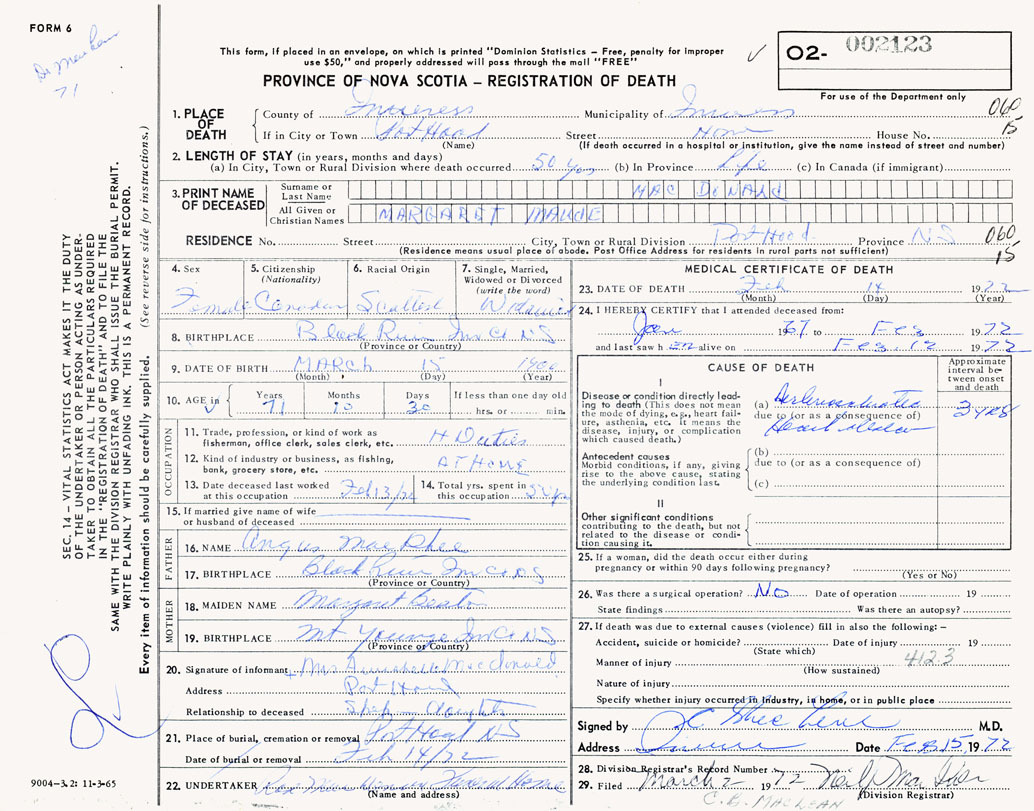 FORM 6
This form, if placed in an envelope, on which is printed "Dominion Statistics – Free, penalty for improper
use $50," and properly addressed will pass through the mail "FREE"
02- 002123
PROVINCE OF NOVA SCOTIA – REGISTRATION OF DEATH
For use of the Department only
71
SEC. 14 – VITAL STATISTICS ACT MAKES IT THE DUTY
OF THE UNDERTAKER OR PERSON ACTING AS UNDER-
TAKER TO OBTAIN ALL THE PARTICULARS REQUIRED
IN THE "REGISTRATION OF DEATH" AND TO FILE THE
SAME WITH THE DIVISION REGISTRAR WHO SHALL ISSUE THE BURIAL PERMIT.
WRITE PLAINLY WITH UNFADING INK. THIS IS A PERMANENT RECORD.
Every item of information should be carefully supplied. (See reverse side for instructions.)
1. PLACE OF DEATH
County of Inverness Municipality of Inverness 060
If in City or Town Port Hood Street Home House No. 15
(Name) (If death occurred in a hospital or institution, give the name instead of street and number)
2. LENGTH OF STAY (in years, months and days)
(a) In City, Town or Rural Division where death occurred 50 yrs (b) In Province Life (c) In Canada (if immigrant)
3. PRINT NAME OF DECEASED
Surname or Last Name MAC DONALD
All Given or Christian Names MARGARET MAUDE
RESIDENCE No. Street City, Town or Rural Division Port Hood Province NS 060
(Residence means usual place of abode. Post Office Address for residents in rural parts not sufficient) 15
4. Sex 5. Citizenship 6. Racial Origin 7. Single, Married,
(Nationality) Widowed or Divorced
(write the word)
Female Canadian Scottish Widowed
8. BIRTHPLACE Black River Inv Co NS
(Province or Country)
9. DATE OF BIRTH MARCH 15 1900
(Month) (Day) (Year)
10. AGE in Years Months Days If less than one day old
71 10 30 hrs. or min.
OCCUPATION
11. Trade, profession, or kind of work as
fisherman, office clerk, sales clerk, etc. H Duties
12. Kind of industry or business, as fishing,
bank, grocery store, etc. AT HOME
13. Date deceased last worked
at this occupation Feb 13/72
14. Total yrs. spent in
this occupation
15. If married give name of wife
or husband of deceased
FATHER
16. NAME Angus MacPhee
17. BIRTHPLACE Black River Inv Co NS
(Province or Country)
MOTHER
18. MAIDEN NAME Margaret Beaton
19. BIRTHPLACE Mt Young Inv Co NS
(Province or Country)
20. Signature of informant Mrs Annabelle MacDonald
Address Port Hood
Relationship to deceased Step Daughter
21. Place of burial, cremation or removal Port Hood NS
Date of burial or removal Feb 14/72
22. UNDERTAKER Funeral Home
(Name and address)
MEDICAL CERTIFICATE OF DEATH
23. DATE OF DEATH Feb 14 1972
(Month) (Day) (Year)
24. I HEREBY CERTIFY that I attended deceased from:
Jan 1967 to Feb 1972
and last saw h er alive on Feb. 12 1972
CAUSE OF DEATH
Approximate interval between onset and death
I
Disease or condition directly lead-
ing to death (This does not mean
the mode of dying, e.g., heart fail-
ure, asthenia, etc. it means the
disease, injury, or complication
which caused death.)
(a) Arteriosclerotic 3 yrs
due to (or as a consequence of)
Heart disease
Antecedent causes
Morbid conditions, if any, giving
rise to the above cause, stating
the underlying condition last.
(b)
due to (or as a consequence of)
(c)
II
Other significant conditions
contributing to the death, but not
related to the disease or condi-
tion causing it.
25. If a woman, did the death occur either during
pregnancy or within 90 days following pregnancy?
(Yes or No)
26. Was there a surgical operation? NO Date of operation 19
State findings Was there an autopsy?
27. If death was due to external causes (violence) fill in also the following: –
Accident, suicide or homicide? Date of injury 19
(State which)
Manner of injury 4123
(How sustained)
Nature of injury
Specify whether injury occurred in industry, in home, or in public place
Signed by M.D.
Address Date Feb 15 1972
28. Division Registrar's Record Number
29. Filed March 2 1972 Neil
(Division Registrar)
C. B. MACLEAN
9004–3.2: 11-3-65